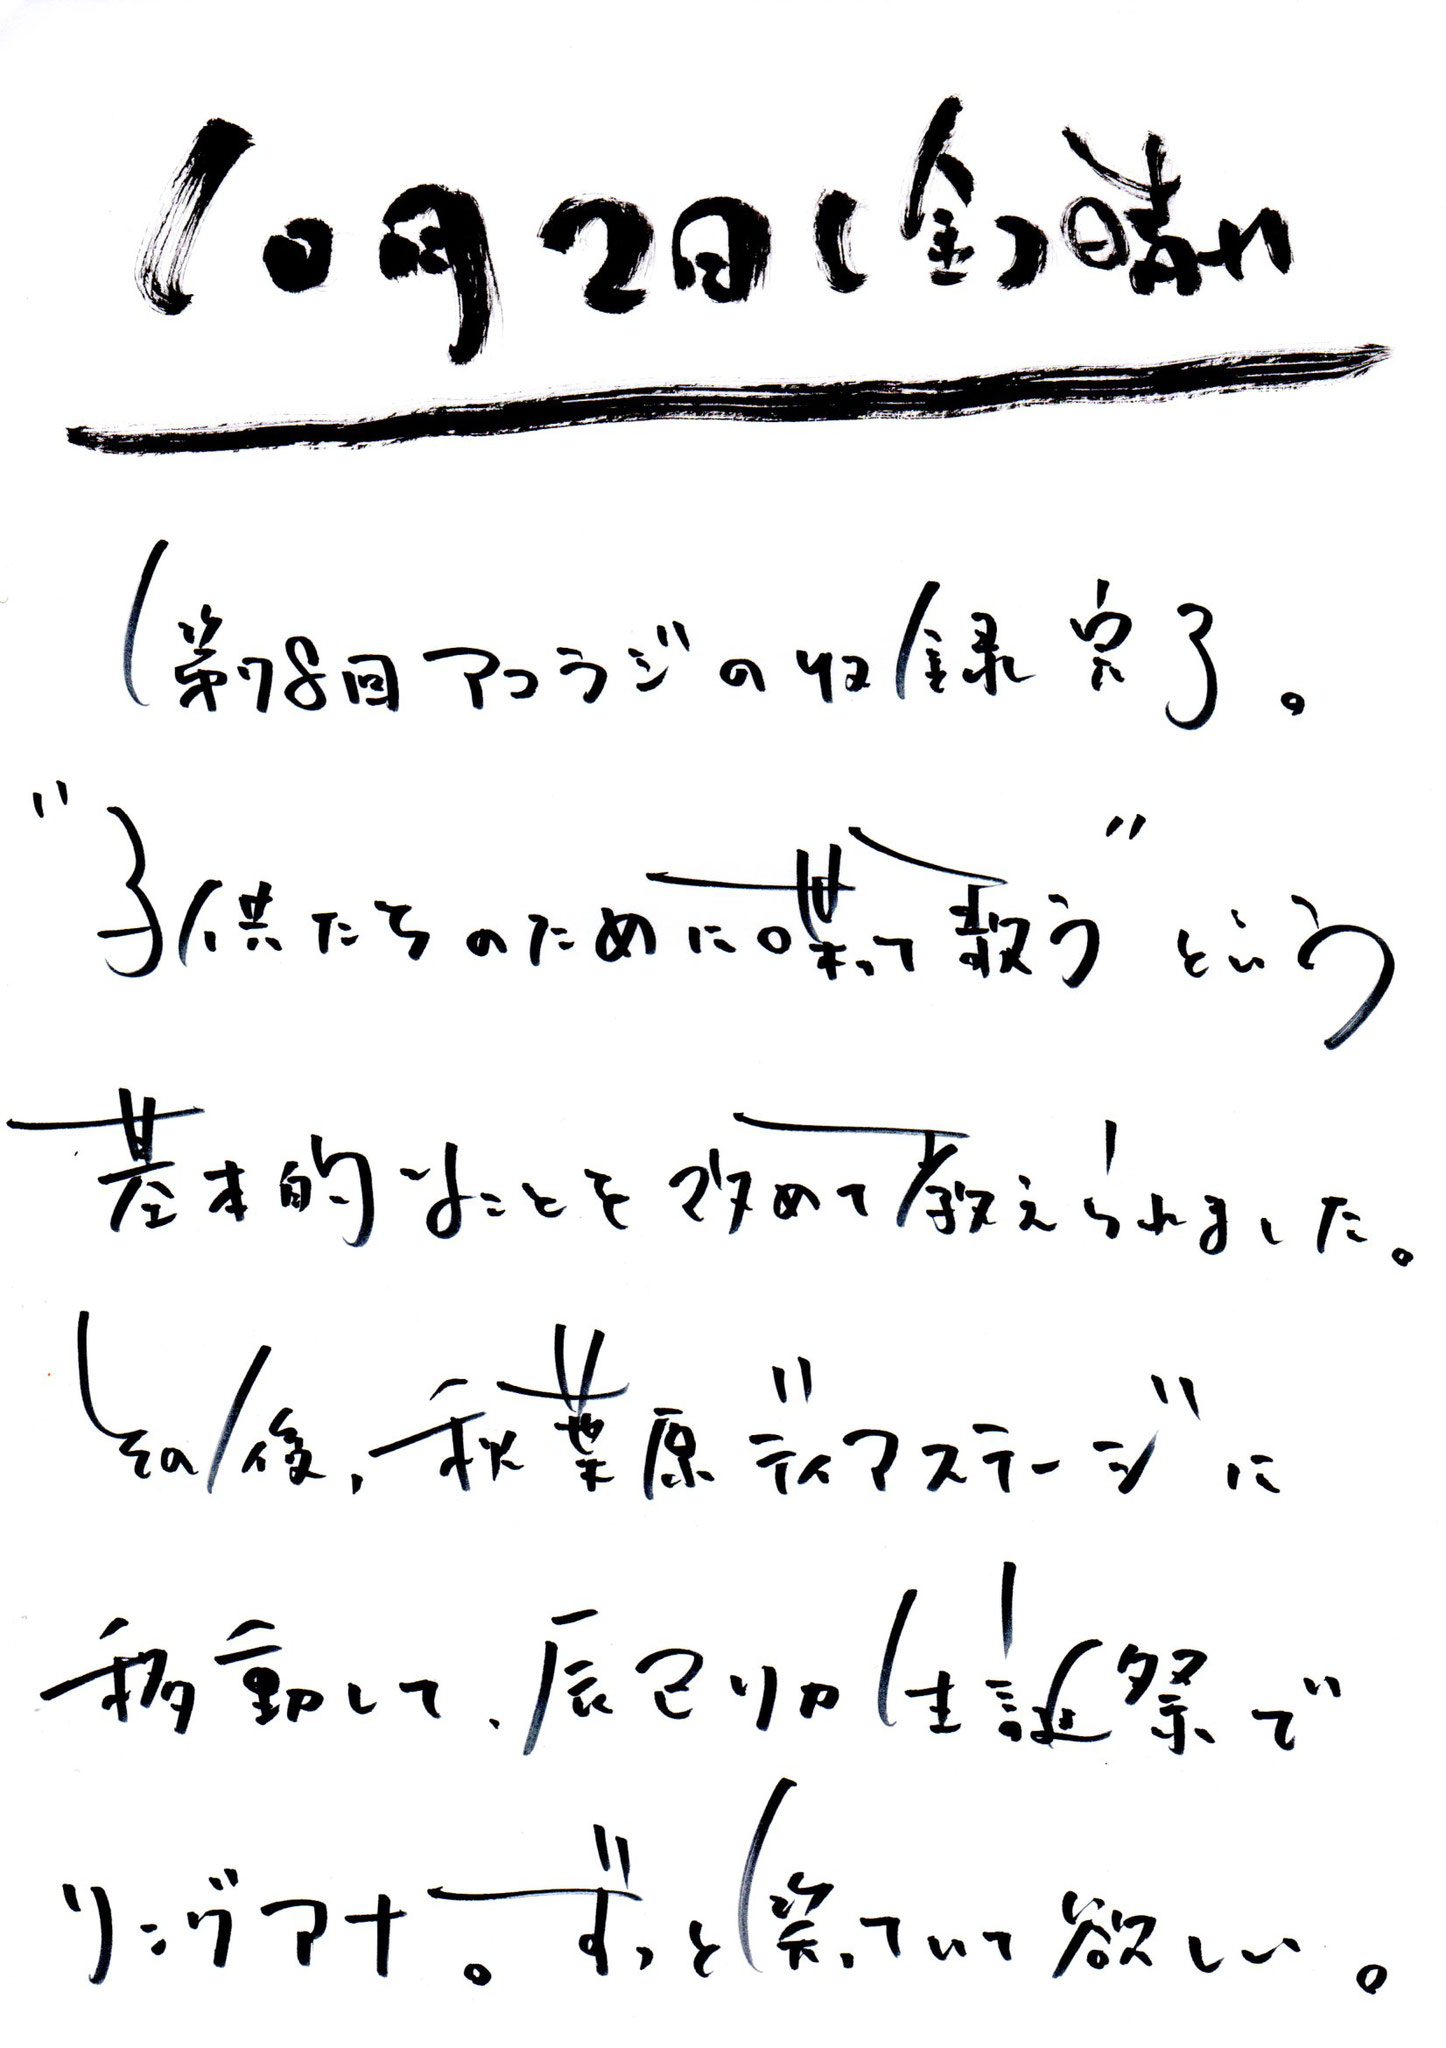 10月2日(金)晴れ
第78回アコラジの収録完了。
"子供たちのために喋って歌う"という
基本的なことを改めて教えられました。
その後、秋葉原ディアステージに
移動して、辰巳リカ生誕祭で
リングアナ。ずっと笑っていて欲しい。